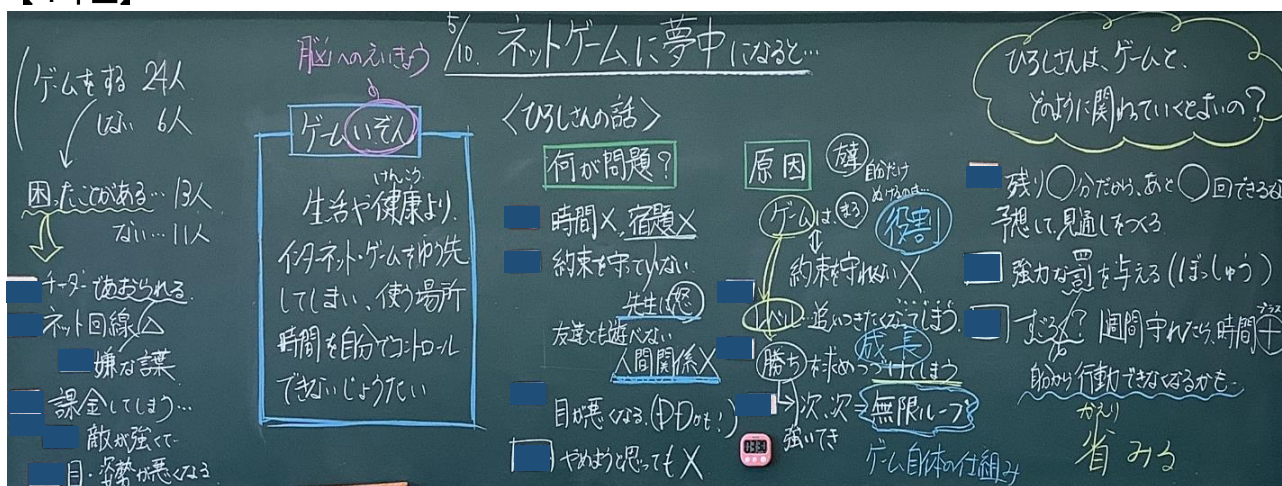 5/10. ネットゲームに夢中になると…
ゲームをする 24人
しない 6人
困ったことがある… 13人
ない… 11人
チーターであおられる
ネット回線△
嫌な言葉
課金してしまう…
敵が強くて
目・姿勢が悪くなる
脳へのえいきょう
ゲームいぞん
けんこう
生活や健康より、
インターネット・ゲームをゆう先
してしまい、使う場所
時間を自分でコントロール
できないじょうたい
〈ひろしさんの話〉
何が問題？
時間×、宿題×
約束を守っていない
先生は怒
友達とも遊べない
人間関係×
目が悪くなる。
やめようと思っても×
原因
自分だけ
ぬけるのは…
役割
ゲームは、
約束を守れない×
レベル…追いつきたくなってしまう。
成長
勝ちを求めつづけてしまう
次、次⇒無限ループ
強いてき
ゲーム自体の仕組み
ひろしさんは、ゲームと、
どのように関わっていくとよいの？
残り〇分だから、あと〇回できるな
予想して、見通しをつくる
強力な罰を与える(ぼっしゅう)
1週間守れたら、時間
プラス
自分から行動できなくなるかも…
かえり
省みる